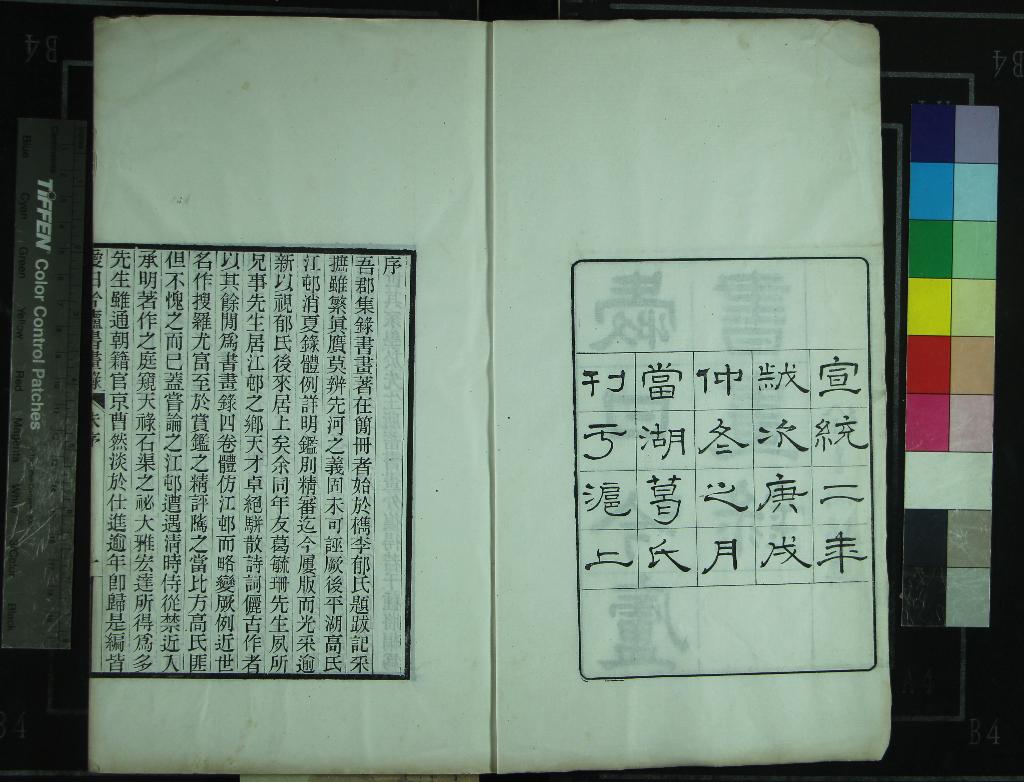 宣統二年
歲次庚戌
仲冬之月
當湖葛氏
刊于滬上
序
吾郡集錄書畫著在簡冊者始於檇李郁氏題跋記采
摭雖繁眞贗莫辨先河之義固未可誣厥後平湖高氏
江邨消夏錄體例詳明鑑別精審迄今屢版而光采逾
新以視郁氏後來居上矣余同年友葛毓珊先生夙所
兄事先生居江邨之鄉天才卓絕駢散詩詞儷古作者
以其餘閒爲書畫錄四卷體仿江邨而略變厥例近世
名作搜羅尤富至於賞鑑之精評隲之當比方高氏匪
但不愧之而已蓋嘗論之江邨遭遇清時侍從禁近入
承明著作之庭窺天祿石渠之祕大雅宏達所得爲多
先生雖通朝籍官京曹然淡於仕進逾年卽歸是編皆
愛日吟廬書畫錄 朱序 一
TIFFEN Color Control Patches
Blue
Cyan
Green
Yellow
Red
Magenta
Black
B4
B4
B4
B4
A4